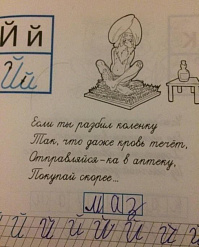 Й й
Й й
Если ты разбил коленку
Так, что даже кровь течёт,
Отправляйся-ка в аптеку,
Покупай скорее...
маз
Й Й Й Й Й Й Й